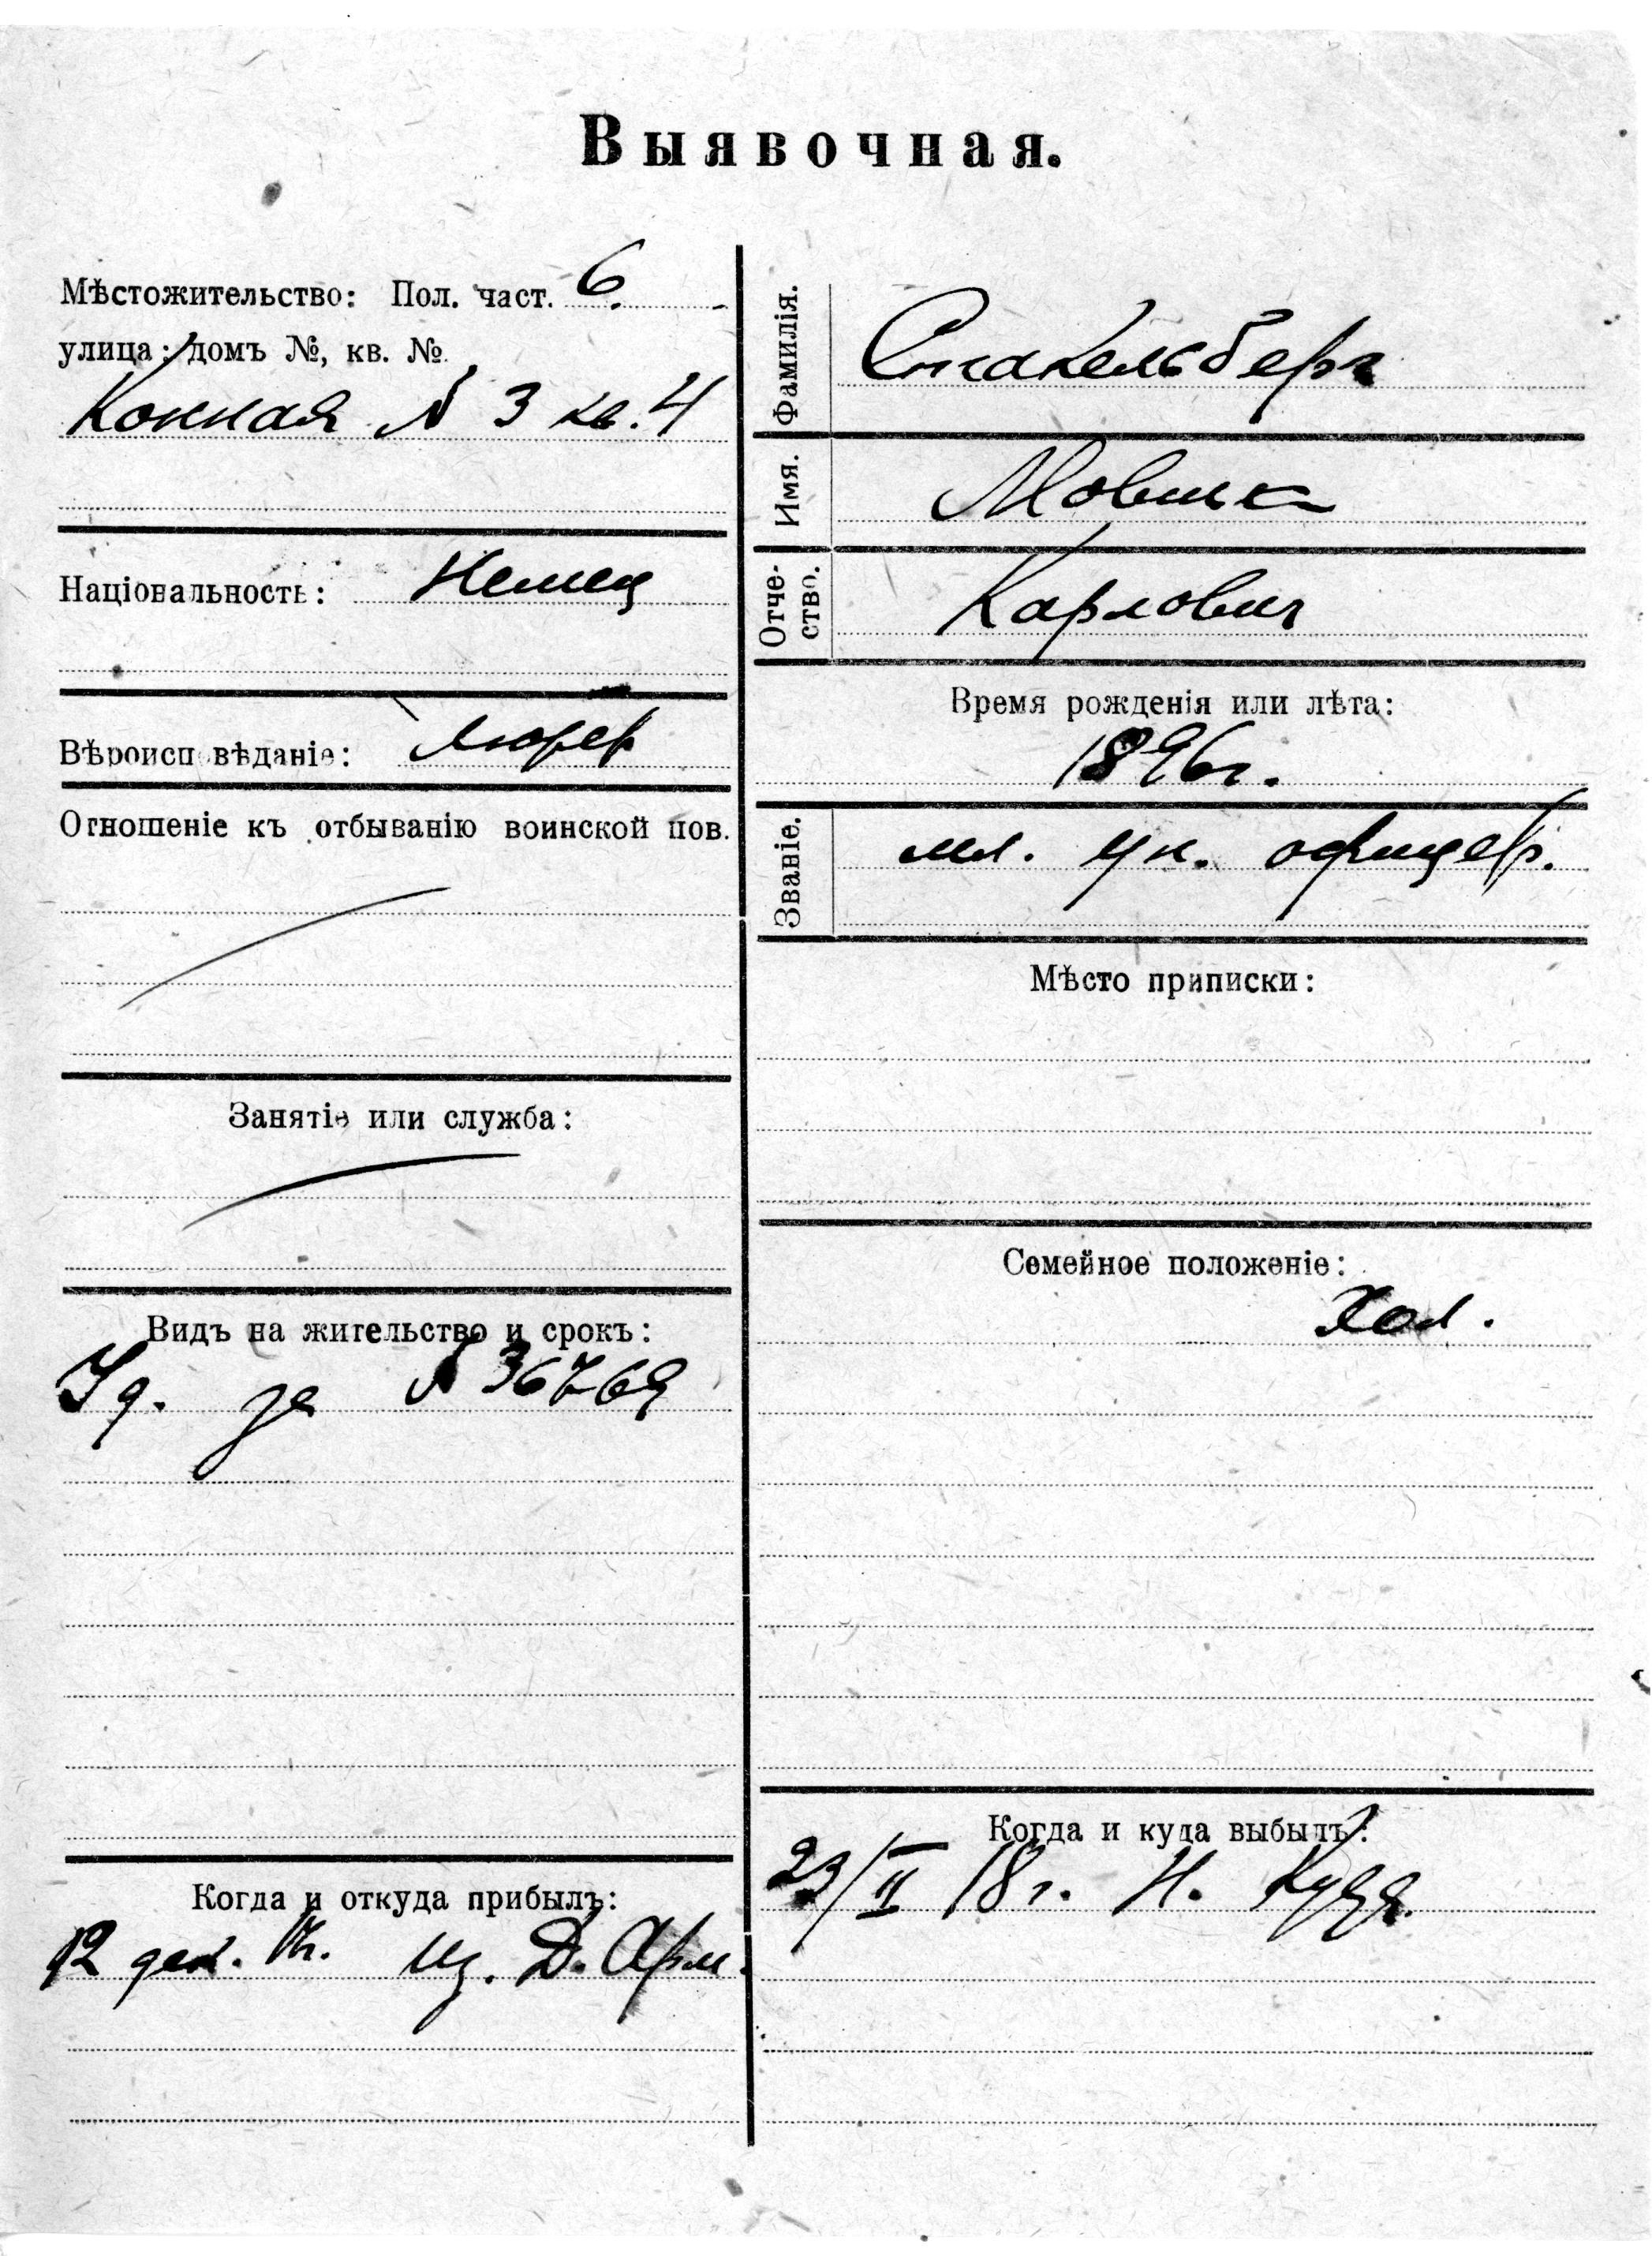 Выявочная.
Мѣстожительство: Пол. част. 6.
улица: домъ №, кв. №
Конная № 3 кв. 4
Національность: Немец
Вѣроисповѣданіе: Лютер
Отношеніе къ отбыванію воинской пов.
Занятіе или служба:
Видъ на жительство и срокъ:
Уд. за № 36769
Когда и откуда прибылъ:
12 дек. 17г. из. Д. Арм.
Фамилія. Стакельберг
Имя.
Отче-
ство. Карлович
Время рожденія или лѣта:
1896г.
Званіе. мл. ун. офицер.
Мѣсто приписки:
Семейное положеніе:
Хол.
Когда и куда выбылъ:
23/II 18г. Н.